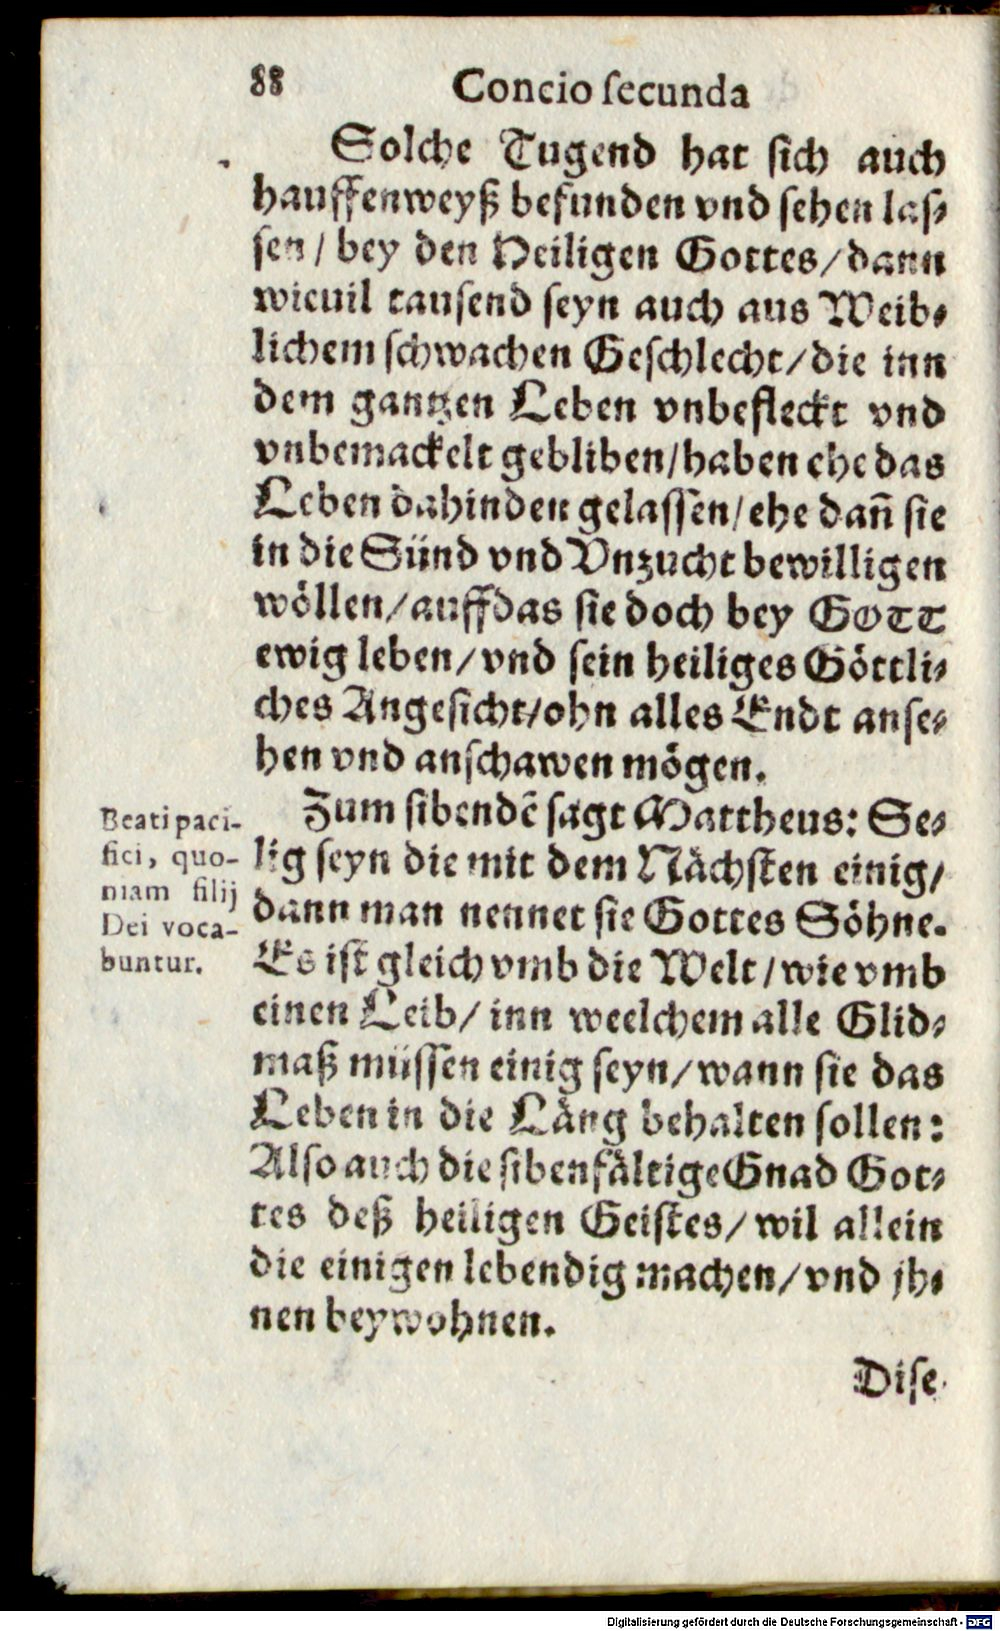 88
Concio ſecunda
Solche Tugend hat sich auch
hauffenweyß befunden vnd sehen las⸗
sen / bey den Heiligen Gottes / dann
wieuil tausend seyn auch aus Weib⸗
lichem schwachen Geschlecht / die inn
dem gantzen Leben vnbefleckt vnd
vnbemackelt gebliben / haben ehe das
Leben dahinden gelassen / ehe dañ sie
in die Sünd vnd Vnzucht bewilligen
wöllen / auffdas sie doch bey GOTT
ewig leben / vnd sein heiliges Göttli⸗
ches Angesicht / ohn alles Endt anse⸗
hen vnd anschawen mögen.
Zum sibendẽ sagt Mattheus: Se⸗
lig seyn die mit dem Nächsten einig /
dann man nennet sie Gottes Söhne.
Es ist gleich vmb die Welt / wie vmb
einen Leib / inn weelchem alle Glid⸗
maß müssen einig seyn / wann sie das
Leben in die Läng behalten sollen:
Also auch die sibenfältige Gnad Got⸗
tes deß heiligen Geistes / wil allein
die einigen lebendig machen / vnd jh⸗
nen beywohnen.
Beati paci-
fici, quo-
niam filij
Dei voca-
buntur.
Dise
Digitalisierung gefördert durch die Deutsche Forschungsgemeinschaft - DFG